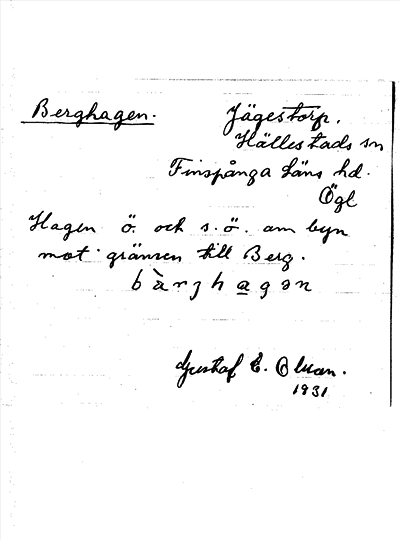 Berghagen.
Jägestorp.
Hällestads sn
Finspånga läns hd.
Ögl
Hagen ö. och s.ö. om byn
mot gränsen till Berg.
bàrjhagən
Gustaf E.
1931